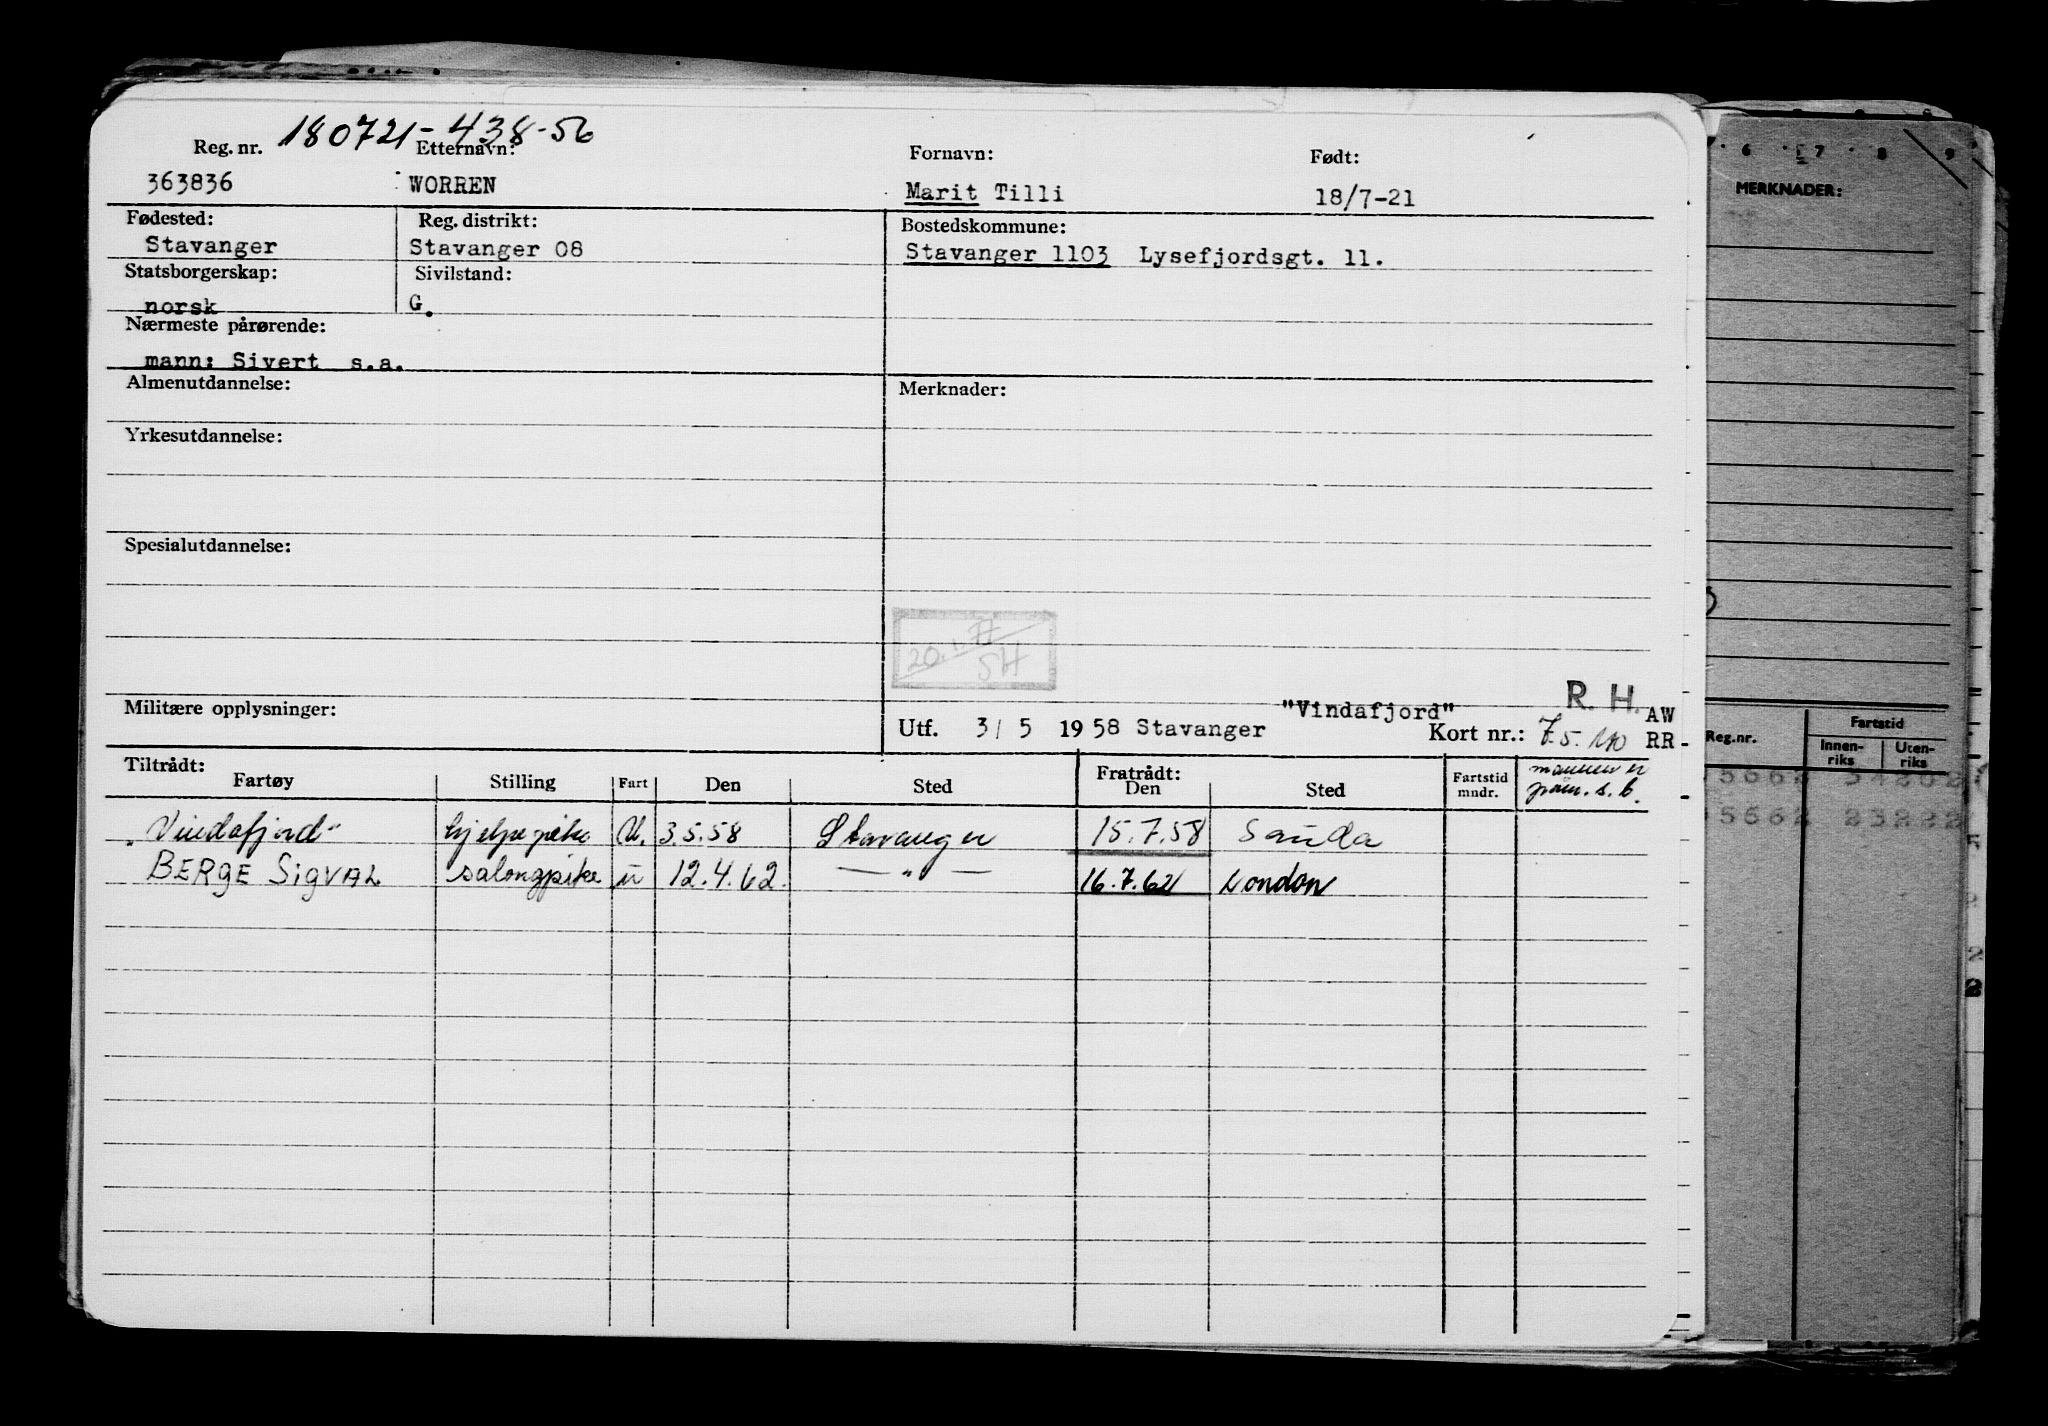 180721-438-56
Reg. nr. Etternavn: Fornavn: Født:
363836 WORREN Marit Tilli 18/7-21
Fødested: Reg. distrikt: Bostedskommune:
Stavanger Stavanger 08 Stavanger 1103 Lysefjordsgt. 11.
Statsborgerskap: Sivilstand:
norsk G.
Nærmeste pårørende:
mann: Sivert s.a.
Almenutdannelse: Merknader:
Yrkesutdannelse:
Spesialutdannelse:
SH
R. H.
Militære opplysninger: "Vindafjord" AW
Utf. 3/5 1958 Stavanger Kort nr.: RR
Tiltrådt: Fratrådt: mannen er
Fartøy Stilling Fart Den Sted Den Sted Fartstid mndr.
"Vindafjord" hjelpepike U. 3.5.58 Stavanger 15.7.58 Sauda
BERGE SIGVAL salongpike u 12.4.62. — " — 16.7.62 London
6 7 8 9
MERKNADER:
Reg.nr. Fartstid
Innen-riks Uten-riks